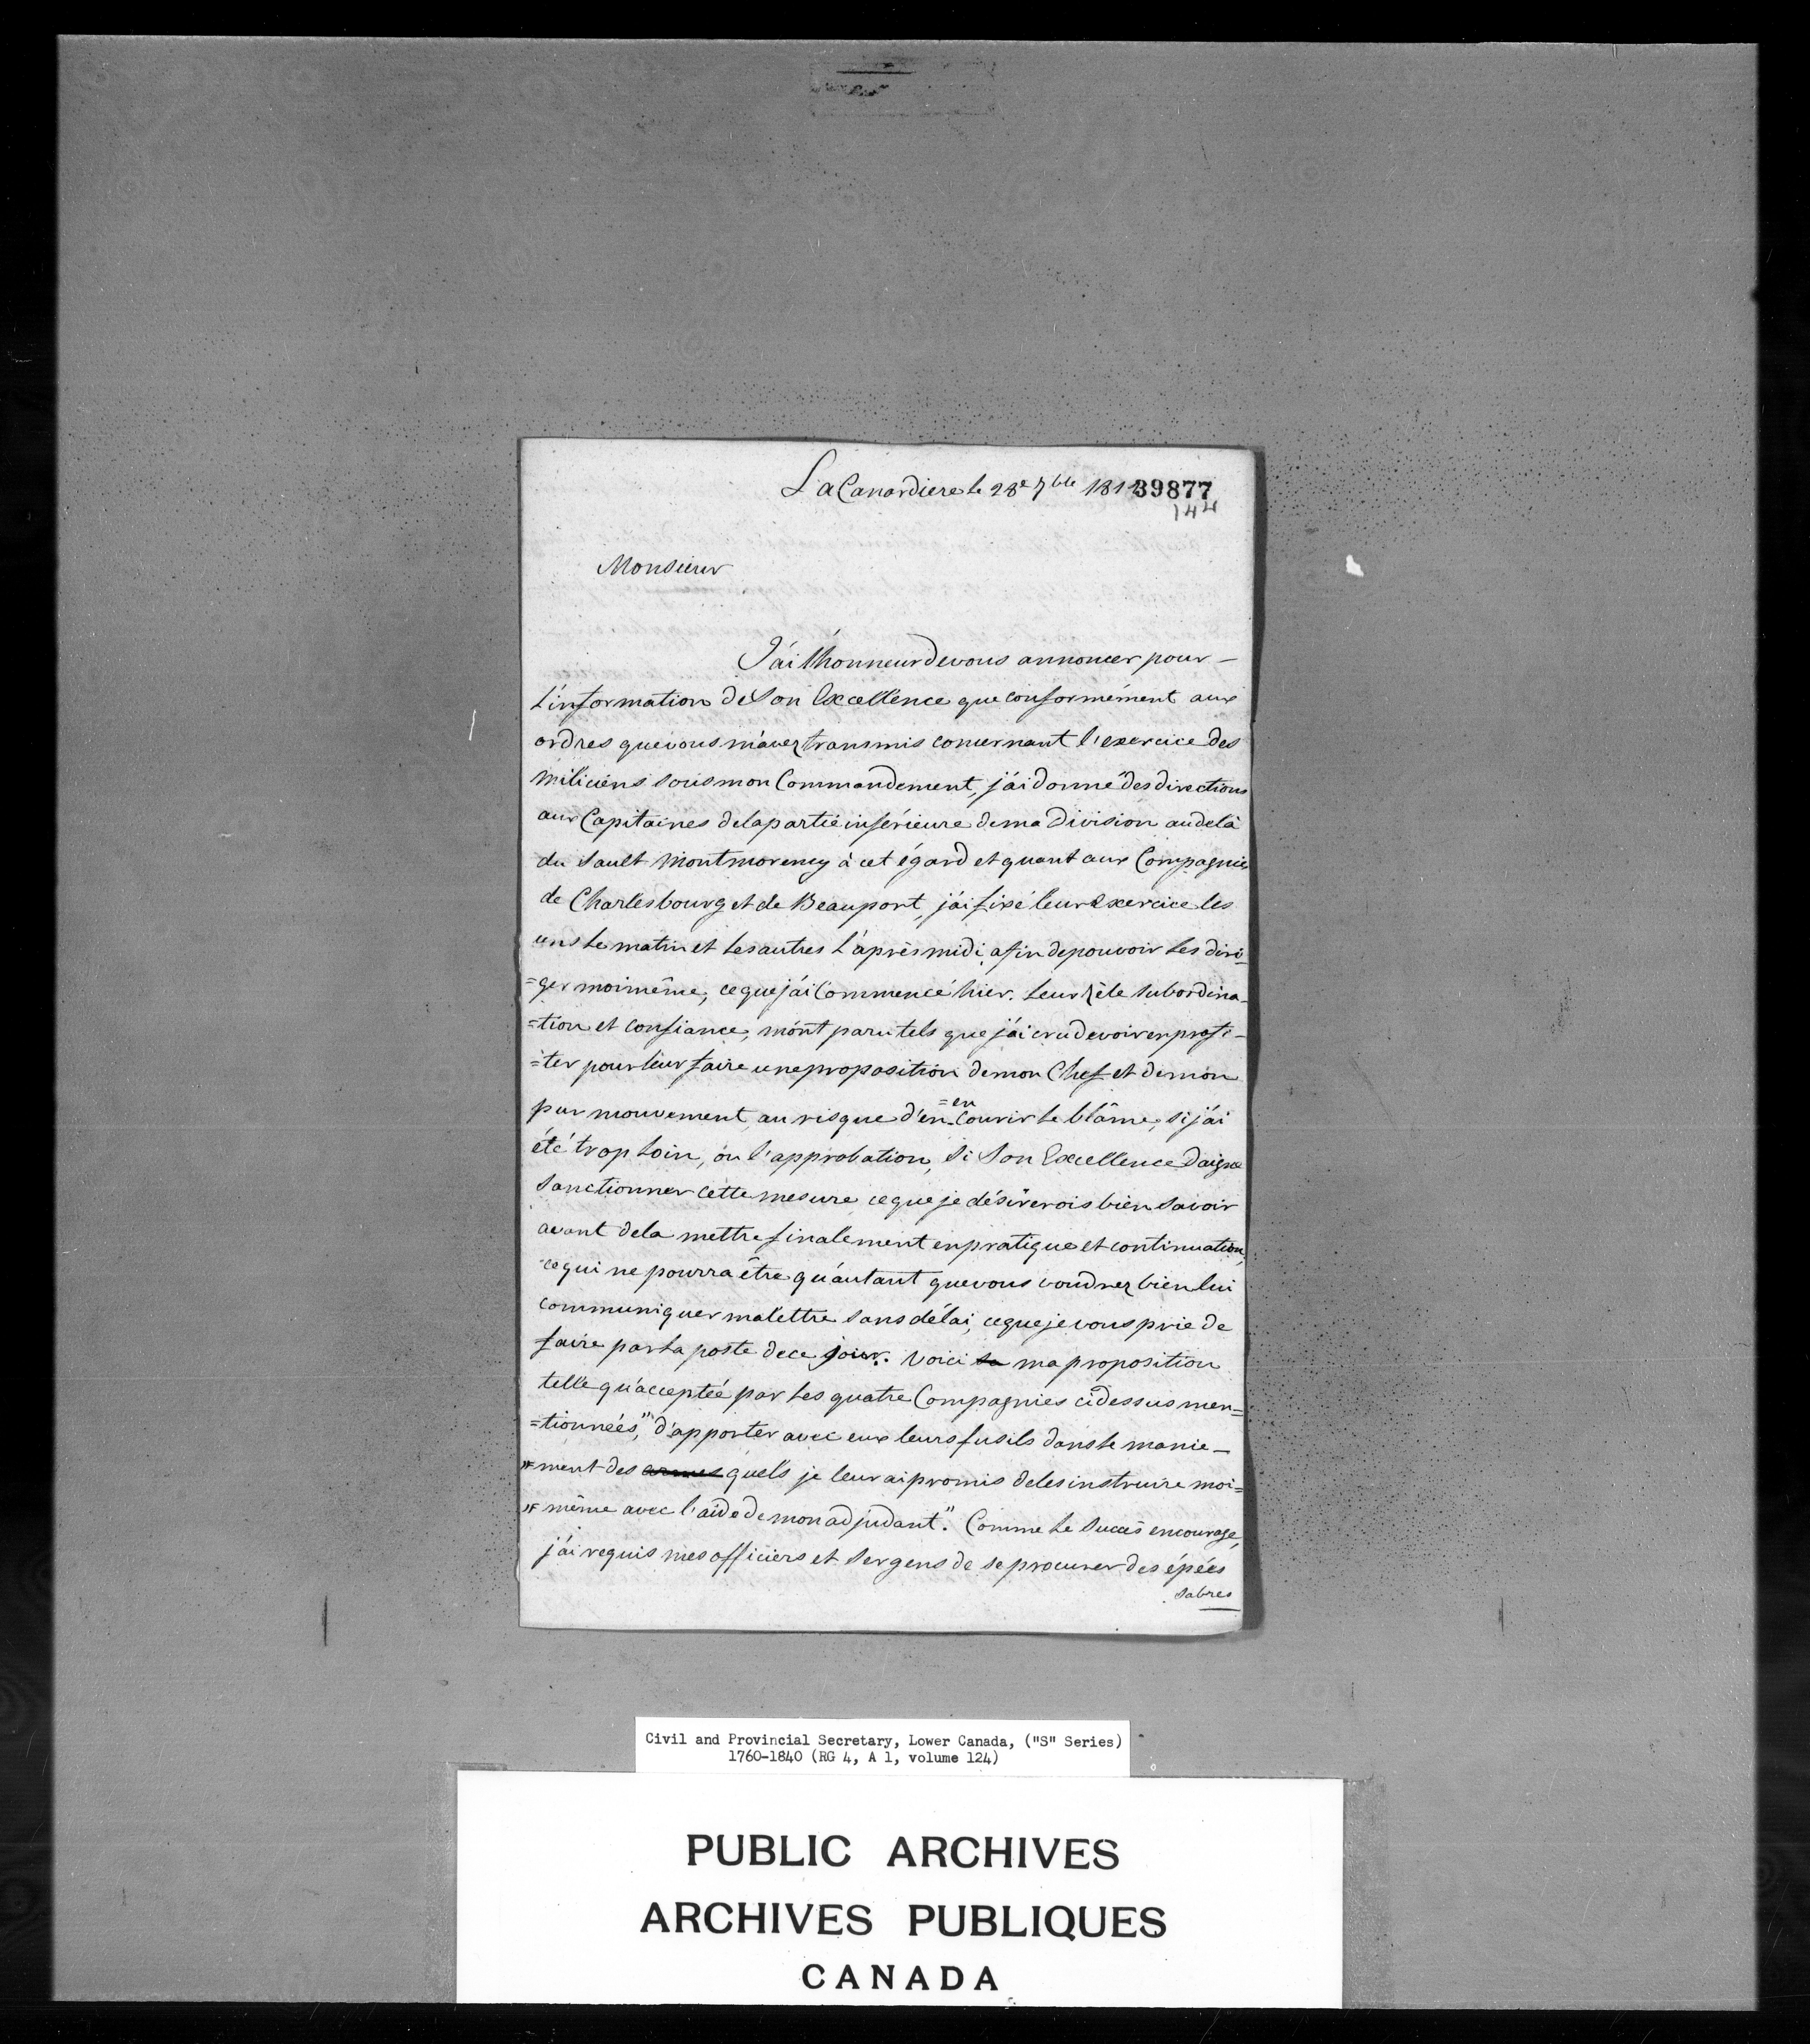 La Canardiere le 28e 7bre 181
39877
144
Monsieur
J'ai l'honneur de vous annoncer pour
l'information de Son Excellence que conformément aux
ordres que vous m'avez transmis concernant l'exercice des
Miliciens sous mon Commandement, j'ai donné des directions
aux Capitaines de la partie inférieure de ma Division au delà
du Sault Montmorency à cet égard et quant aux Compagnies
de Charlesbourg et de Beauport, j'ai fixé leur Exercice les
uns le matin et les autres l'après midi, afin de pouvoir les diri-
=ger moi même, ce que j'ai Commencé hier. Leur zèle subordina-
=tion et confiance, m'ont paru tels que j'ai cru devoir en profi-
=ter pour leur faire une proposition de mon Chef et de mon
pur mouvement, au risque d'en =en courir le blâme, si j'ai
été trop loin, ou l'approbation, si Son Excellence daigne
Sanctionner cette mesure ce que je désirerois bien savoir
avant de la mettre finalement en pratique et continuation,
ce qui ne pourra être qu'autant que vous voudrez bien lui
communiquer ma lettre sans délai, ce que je vous prie de
faire par la poste de ce jour. Voici sa ma proposition
telle qu'acceptée par les quatre Compagnies ci dessus men=
=tionnées, "d'apporter avec eux leurs fusils dans le manie-
"=ment des armes quels je leur ai promis de les instruire moi=
"=même avec l'aide de mon adjudant". Comme le succès encourage,
j'ai requis mes officiers et Sergens de se procurer des épées
Sabres
Civil and Provincial Secretary, Lower Canada, ("S" Series)
1760-1840 (RG 4, A 1, volume 124)
PUBLIC ARCHIVES
ARCHIVES PUBLIQUES
CANADA